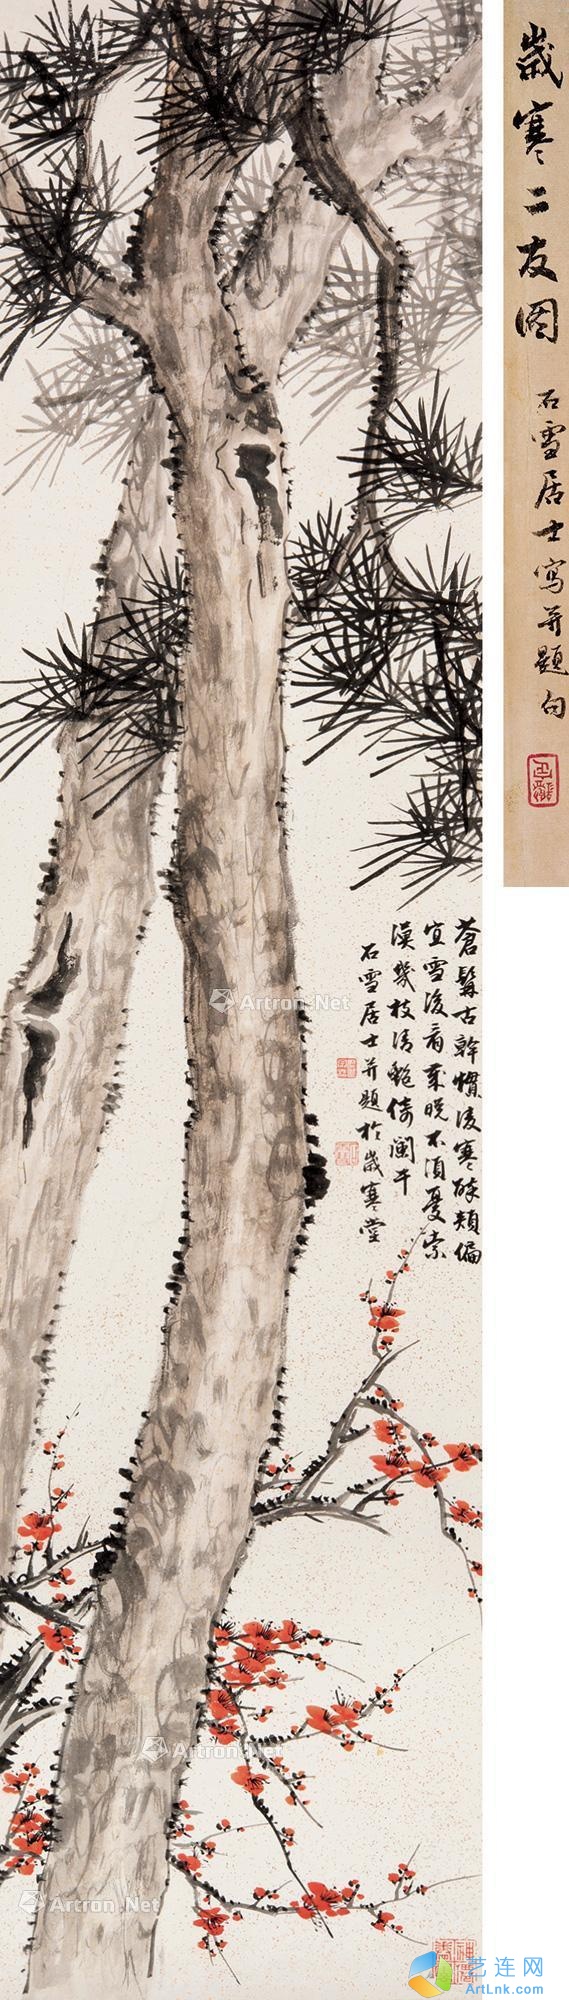 歲寒二友圖
石雪居士寫并題句
蒼髯古幹慣凌寒醉頰偏
宜雪後看歲晚不須憂索
漠幾枝清艷倚闌干
石雪居士并題於歲寒堂
Artron.Net
Artron.Net
Artron.Net
Artron.Net
艺连网
ArtLnk.com